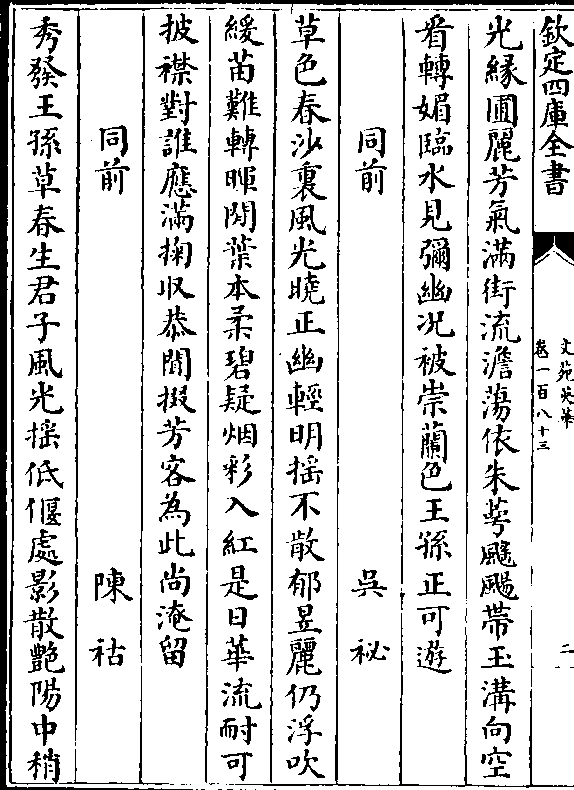 欽定四庫全書
文苑英華
卷一百八十三
二
光緣圃麗芳氣滿街流澹蕩依朱萼飈颺帶玉溝向空
看轉媚臨水見彌幽况被崇蘭色王孫正可遊
同前 吳祕
草色春沙裏風光曉正幽輕明揺不散郁昱麗仍浮吹
緩苖難轉暉閑葉本柔碧疑烟彩入紅是日華流耐可
披襟對誰應滿掬収恭聞掇芳客為此尚淹留
同前 陳祜
秀發王孫草春生君子風光揺低偃處影散艷陽中稍